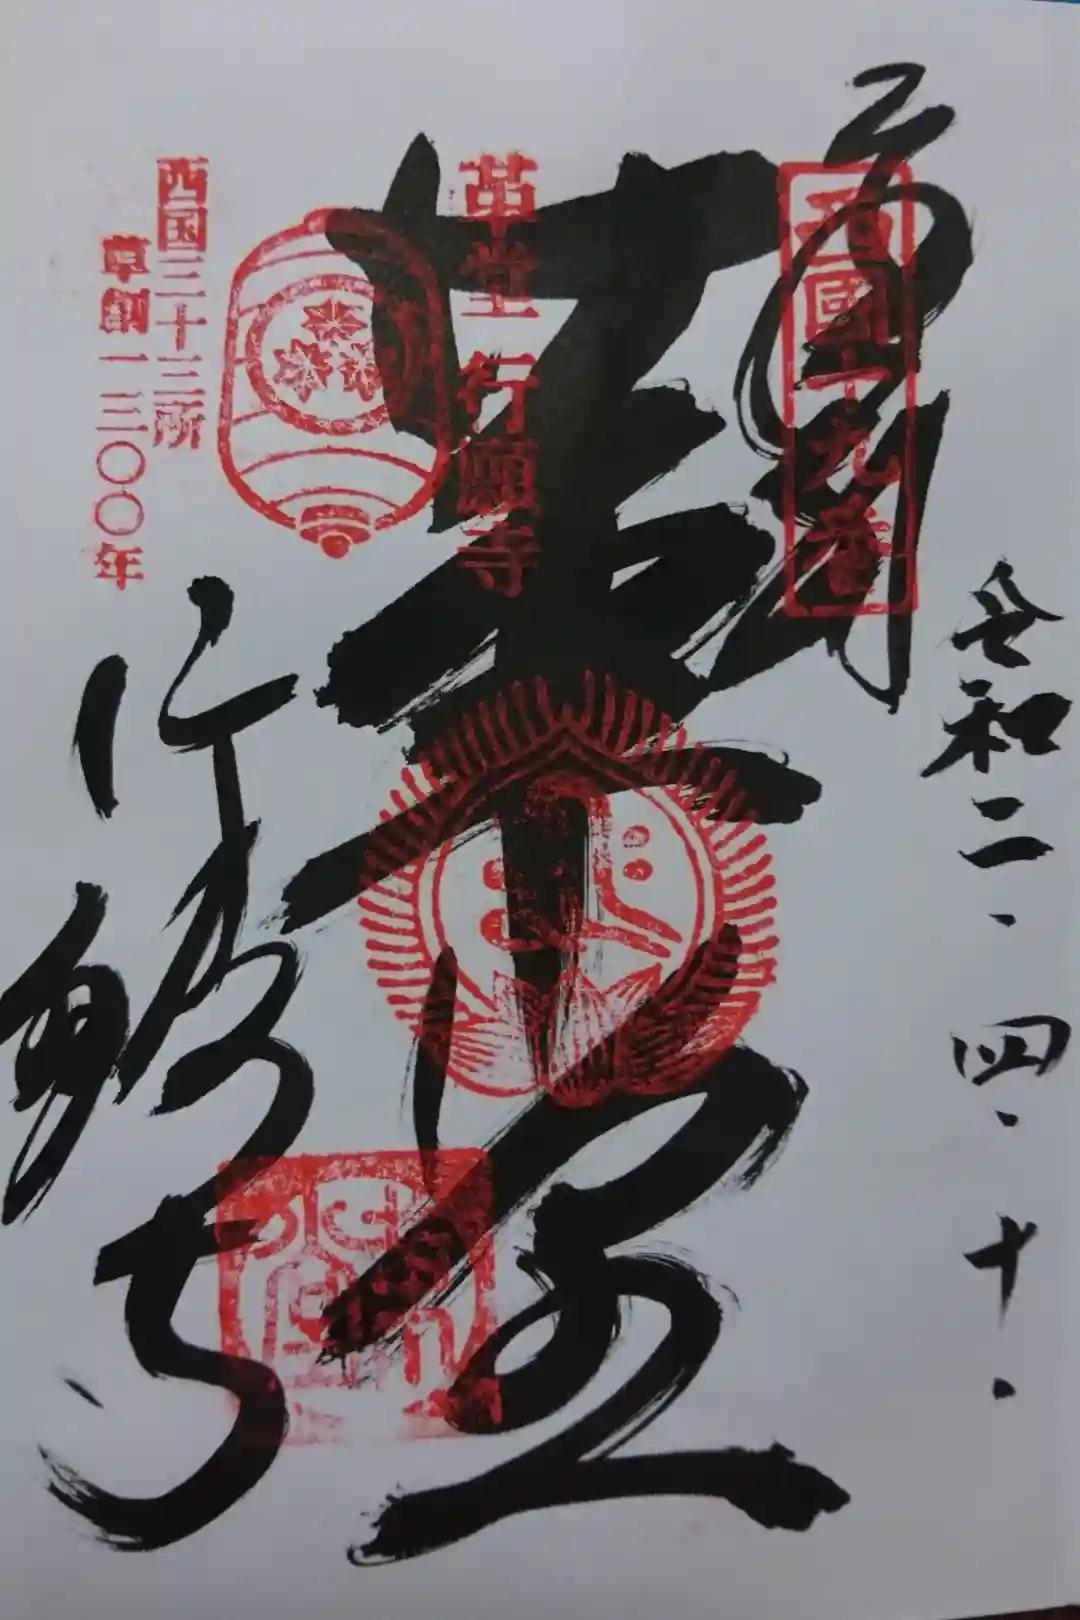 令和二.四.十.
奉拝
西國十九番
革堂
革堂 行願寺
行願寺
西国三十三所
草創一三〇〇年